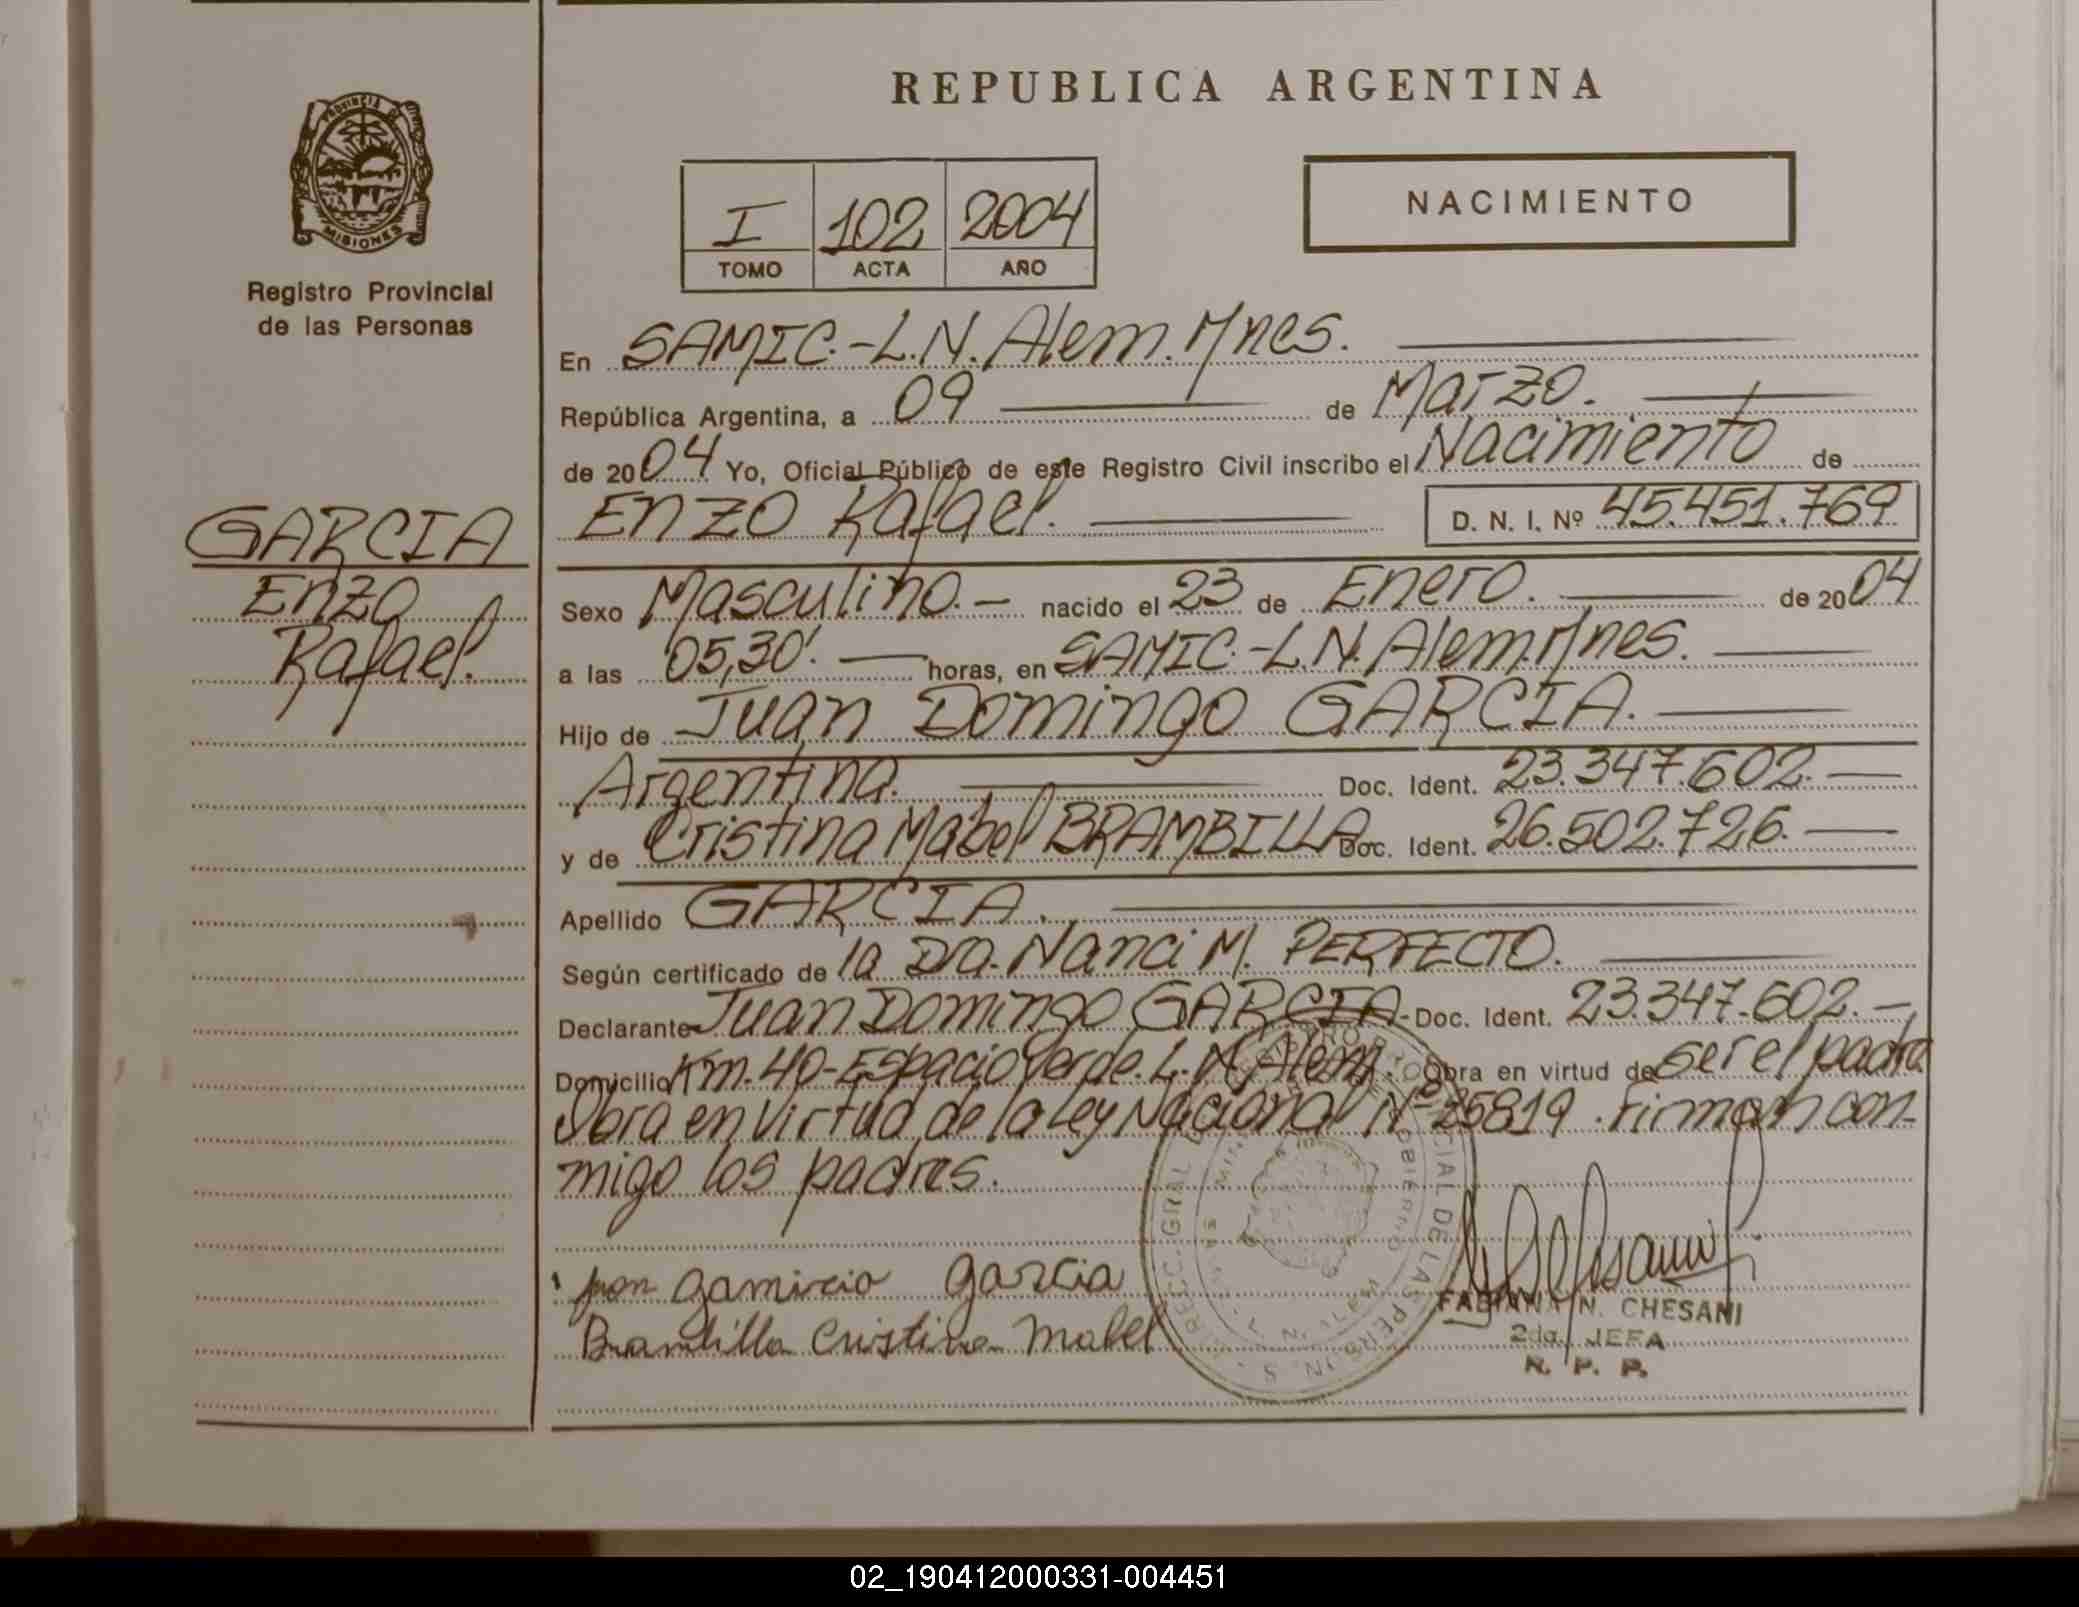 REPUBLICA ARGENTINA
PROVINCIA DE
MISIONES
Registro Provincial
de las Personas
I 102 2004
TOMO ACTA AÑO
NACIMIENTO
En SAMIC.-L.N.Alem.Mnes.
República Argentina, a 09 de Marzo.
de 2004 Yo, Oficial Público de este Registro Civil inscribo el Nacimiento de
Enzo Rafael. D. N. I. Nº 45.451.769
GARCIA
Enzo
Rafael.
Sexo Masculino.- nacido el 23 de Enero. de 2004
a las 05,30'. horas, en SAMIC.-L.N.Alem.Mnes.
Hijo de Juan Domingo GARCIA.
Argentina. Doc. Ident. 23.347.602.
y de Cristina Mabel BRAMBILLA Doc. Ident. 26.502.726.
Apellido GARCIA.
Según certificado de la Dra. Nanci M. PERFECTO.
Declarante Juan Domingo GARCIA. Doc. Ident. 23.347.602.-
Domicilio Km.40-Espacio Verde.L.N.Alem. Obra en virtud de ser el padre
Obra en virtud de la Ley Nacional Nº 25819. Firman con-
migo los padres.
garcia
Brambilla Cristina Mabel
FABIANA N. CHESANI
2da. JEFA
R. P. P.
02_190412000331-004451